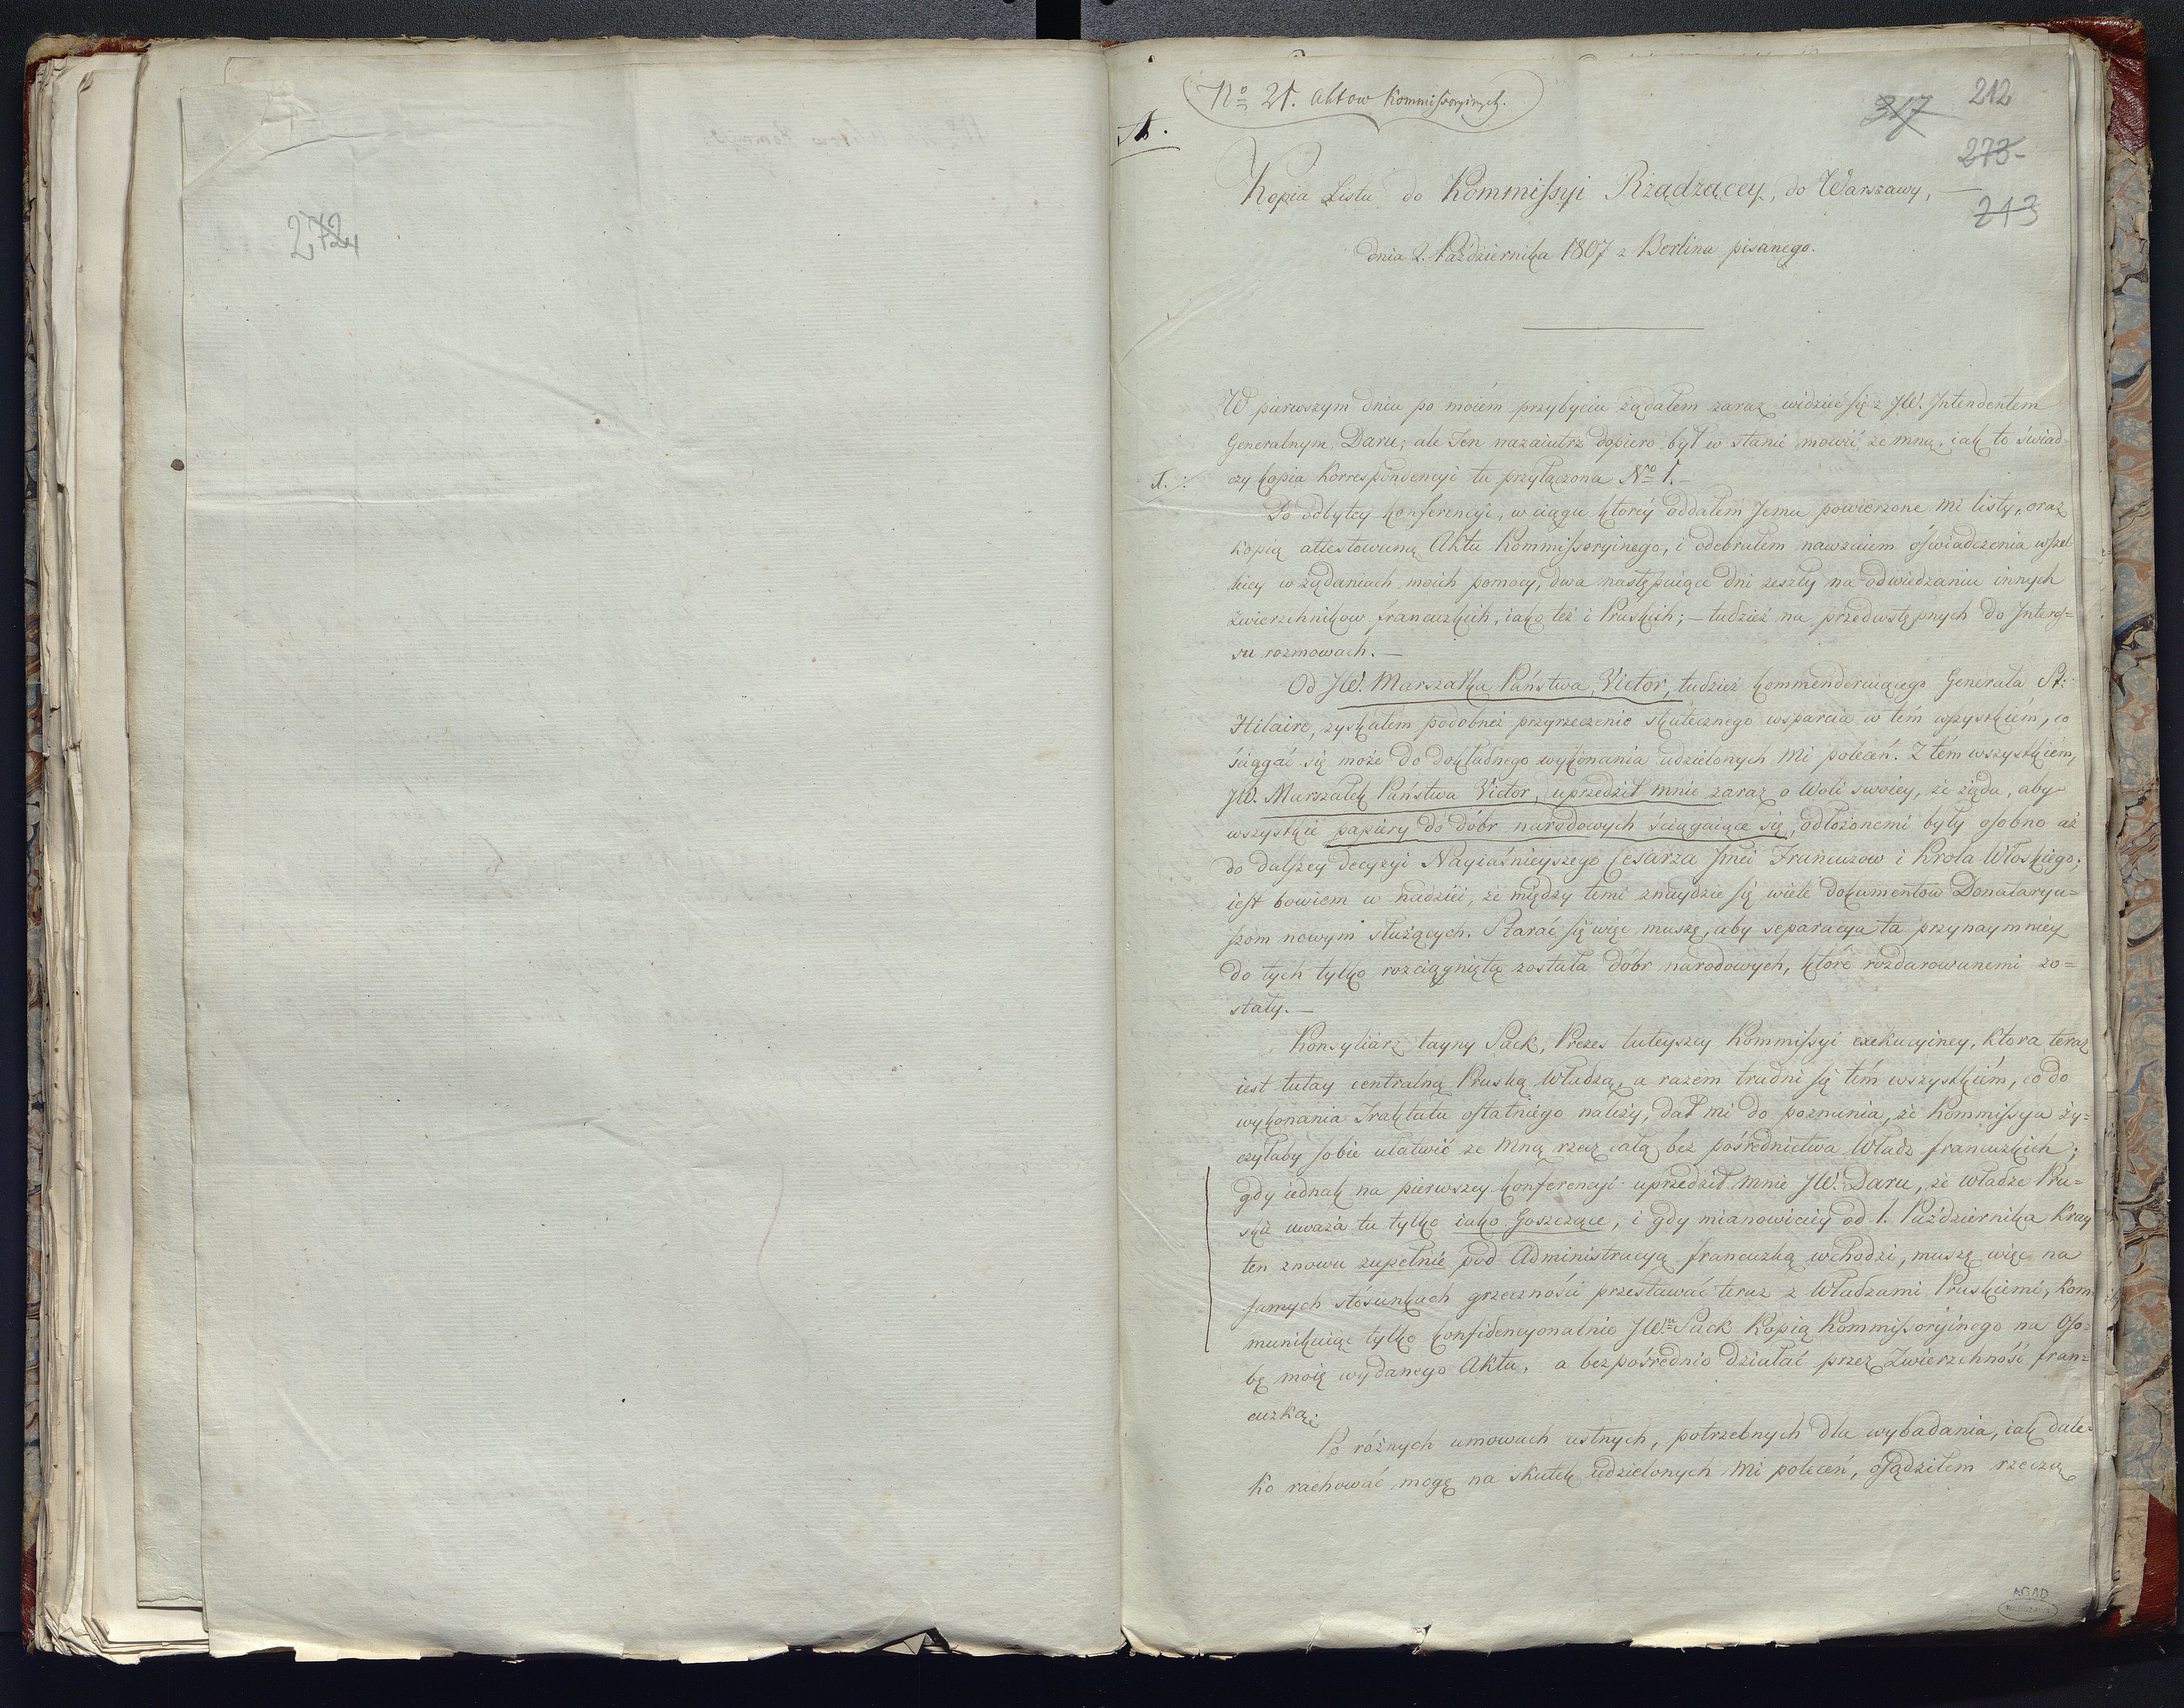 272
No 21. Aktow Kommissoryinych.
A.
317
212
273
213
Kopia Listu do Kommissyi Rządzącey, do Warszawy,
dnia 2. Października 1807 z Berlina pisanego.
W pierwszym dniu po moiém przybyciu żądałem zaraz widzieć się z JW. Intendentem
Generalnym Daru; ale Ten nazaiutrz dopiero był w stanie mówić ze mną, iak to świad-
czy kopia Korrespondencyi tu przyłączona No 1.
1. ./.
Po odbytey konferencyi, w ciągu którey oddałem Jemu powierzone mi listy, oraz
kopią attestowaną Aktu Kommissoryinego, i odebrałem nawzaiem oświadczenia wszel-
kiey w żądaniach moich pomocy, dwa następuiące dni zeszły na odwiedzaniu innych
zwierzchnikow francuzkich, iako też i Pruskich; – tudzież na przedwstępnych do Interes=
su rozmowach. –
Od JW. Marszałka Państwa, Victor, tudzież kommenderuiącego Generała St:
Hilaire, zyskałem podobnież przyrzeczenie skutecznego wsparcia w tém wszystkiém, co
ściągać się może do dokładnego wykonania udzielonych mi poleceń. Z tém wszystkiém,
JW. Marszałek Państwa Victor, uprzedził mnie zaraz o Woli swoiey, że żąda, aby
wszystkie papiery do dóbr narodowych ściągaiące się, odłożonemi były osobno aż
do dalszey decyzyi Nayiaśnieyszego Cesarza Jmci Francuzow i Krola Włoskiego;
iest bowiem w nadziei, że między temi znaydzie się wiele dokumentow Donatarya=
szom nowym służących. Starać się więc muszę, aby separacya ta przynaymniey
do tych tylko rozciągniętą została dóbr narodowych, które rozdarowanemi zo=
stały. –
Konsyliarz tayny Sack, Prezes tuteyszey Kommissyi exekucyiney, ktora teraz
iest tutay centralną Pruską Władzą, a razem trudni się tém wszystkiém, co do
wykonania Traktatu ostatniego należy, dał mi do poznania, że Kommissya ży=
czyłaby sobie ułatwić ze mną rzecz całą bez pośrednictwa Władz francuzkich;
gdy iednak na pierwszey konferencyi uprzedził mnie JW. Daru, że władze Pru=
skie uważa tu tylko iako Goszczące, i gdy mianowiciey od 1. Października Kray
ten znowu zupełnie pod Administracyą francuzką wchodzi, muszę więc na
samych stósunkach grzeczności przestawać teraz z Władzami Pruskiemi, kom-
munikuiąc tylko konfidencyonalnie JWmu Sack Kopią Kommissoryinego na Oso=
bę moię wydanego Aktu, a bezpośrednio działać przez Zwierzchność fran=
cuzką.
Po różnych umowach ustnych, potrzebnych dla wybadania, iak dale=
ko rachować mogę na skutek udzielonych mi poleceń, osądziłem rzeczą
AGAD